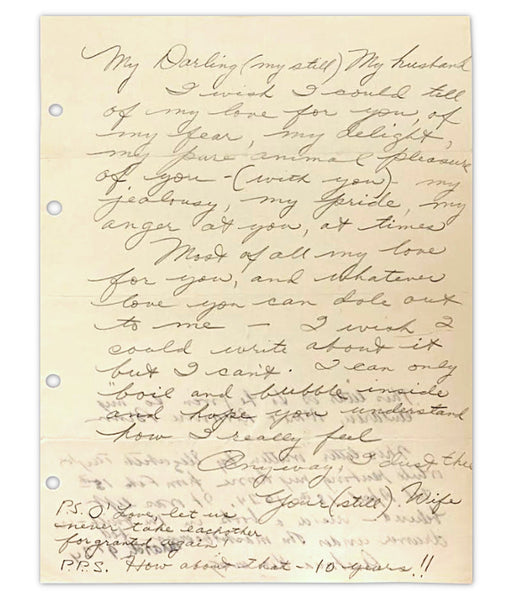 My Darling (my still) My husband
I wish I could tell
of my love for you, of
my fear, my delight,
my pure animal pleasure
of you - (with you) - my
jealousy, my pride, my
anger at you, at times
Most of all my love
for you, and whatever
love you can dole out
to me - I wish I
could write about it
but I can't. I can only
"boil and bubble" inside
and hope you understand
how I really feel
Anyway, I lust thee
Your (still) Wife
P.S. O' Love, let us
never take each other
for granted again
P.P.S. How about that - 10 years!!